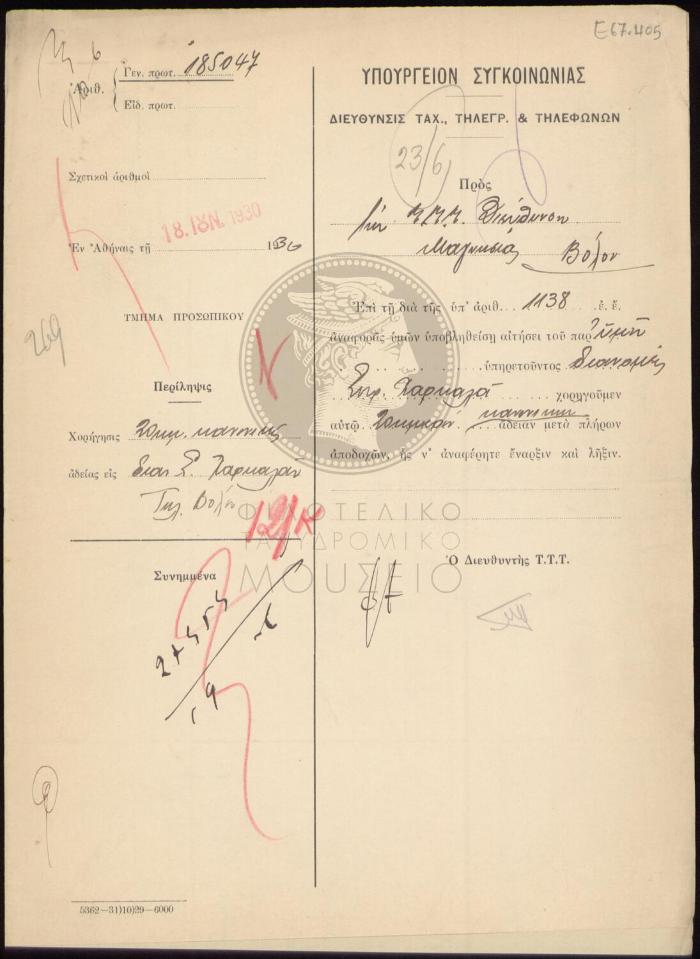 Ε67.405
6
Ἀριθ.
Γεν. πρωτ. 185047
Εἰδ. πρωτ.
Σχετικοὶ ἀριθμοὶ
18. ΙΟΥΝ. 1930
Ἐν Ἀθήναις τῇ 1930
ΤΜΗΜΑ ΠΡΟΣΩΠΙΚΟΥ
269
Περίληψις
Χορήγησις 20ημ. κανονικῆς
ἀδείας εἰς διαν. Σ.
Βόλου
12/Κ
Συνημμένα
5362—31)10)29—6000
ΥΠΟΥΡΓΕΙΟΝ ΣΥΓΚΟΙΝΩΝΙΑΣ
ΔΙΕΥΘΥΝΣΙΣ ΤΑΧ., ΤΗΛΕΓΡ. & ΤΗΛΕΦΩΝΩΝ
23/6
Πρὸς
Τὴν Τ.Τ.Τ. Διεύθυνσιν
Μαγνησίας Βόλον
Ἐπὶ τῇ διὰ τῆς ὑπ' ἀριθ. 1138 ἐ. ἔ.
ἀναφορᾶς ὑμῶν ὑποβληθείσῃ αἰτήσει τοῦ παρ' ὑμῖν
ὑπηρετοῦντος διανομέως
Σπ. χορηγοῦμεν
αὐτῷ 20ήμερον κανονικὴν ἄδειαν μετὰ πλήρων
ἀποδοχῶν, ἧς ν' ἀναφέρητε ἔναρξιν καὶ λῆξιν.
Ὁ Διευθυντὴς Τ.Τ.Τ.
ΦΙΛΟΤΕΛΙΚΟ
ΤΑΧΥΔΡΟΜΙΚΟ
ΜΟΥΣΕΙΟ